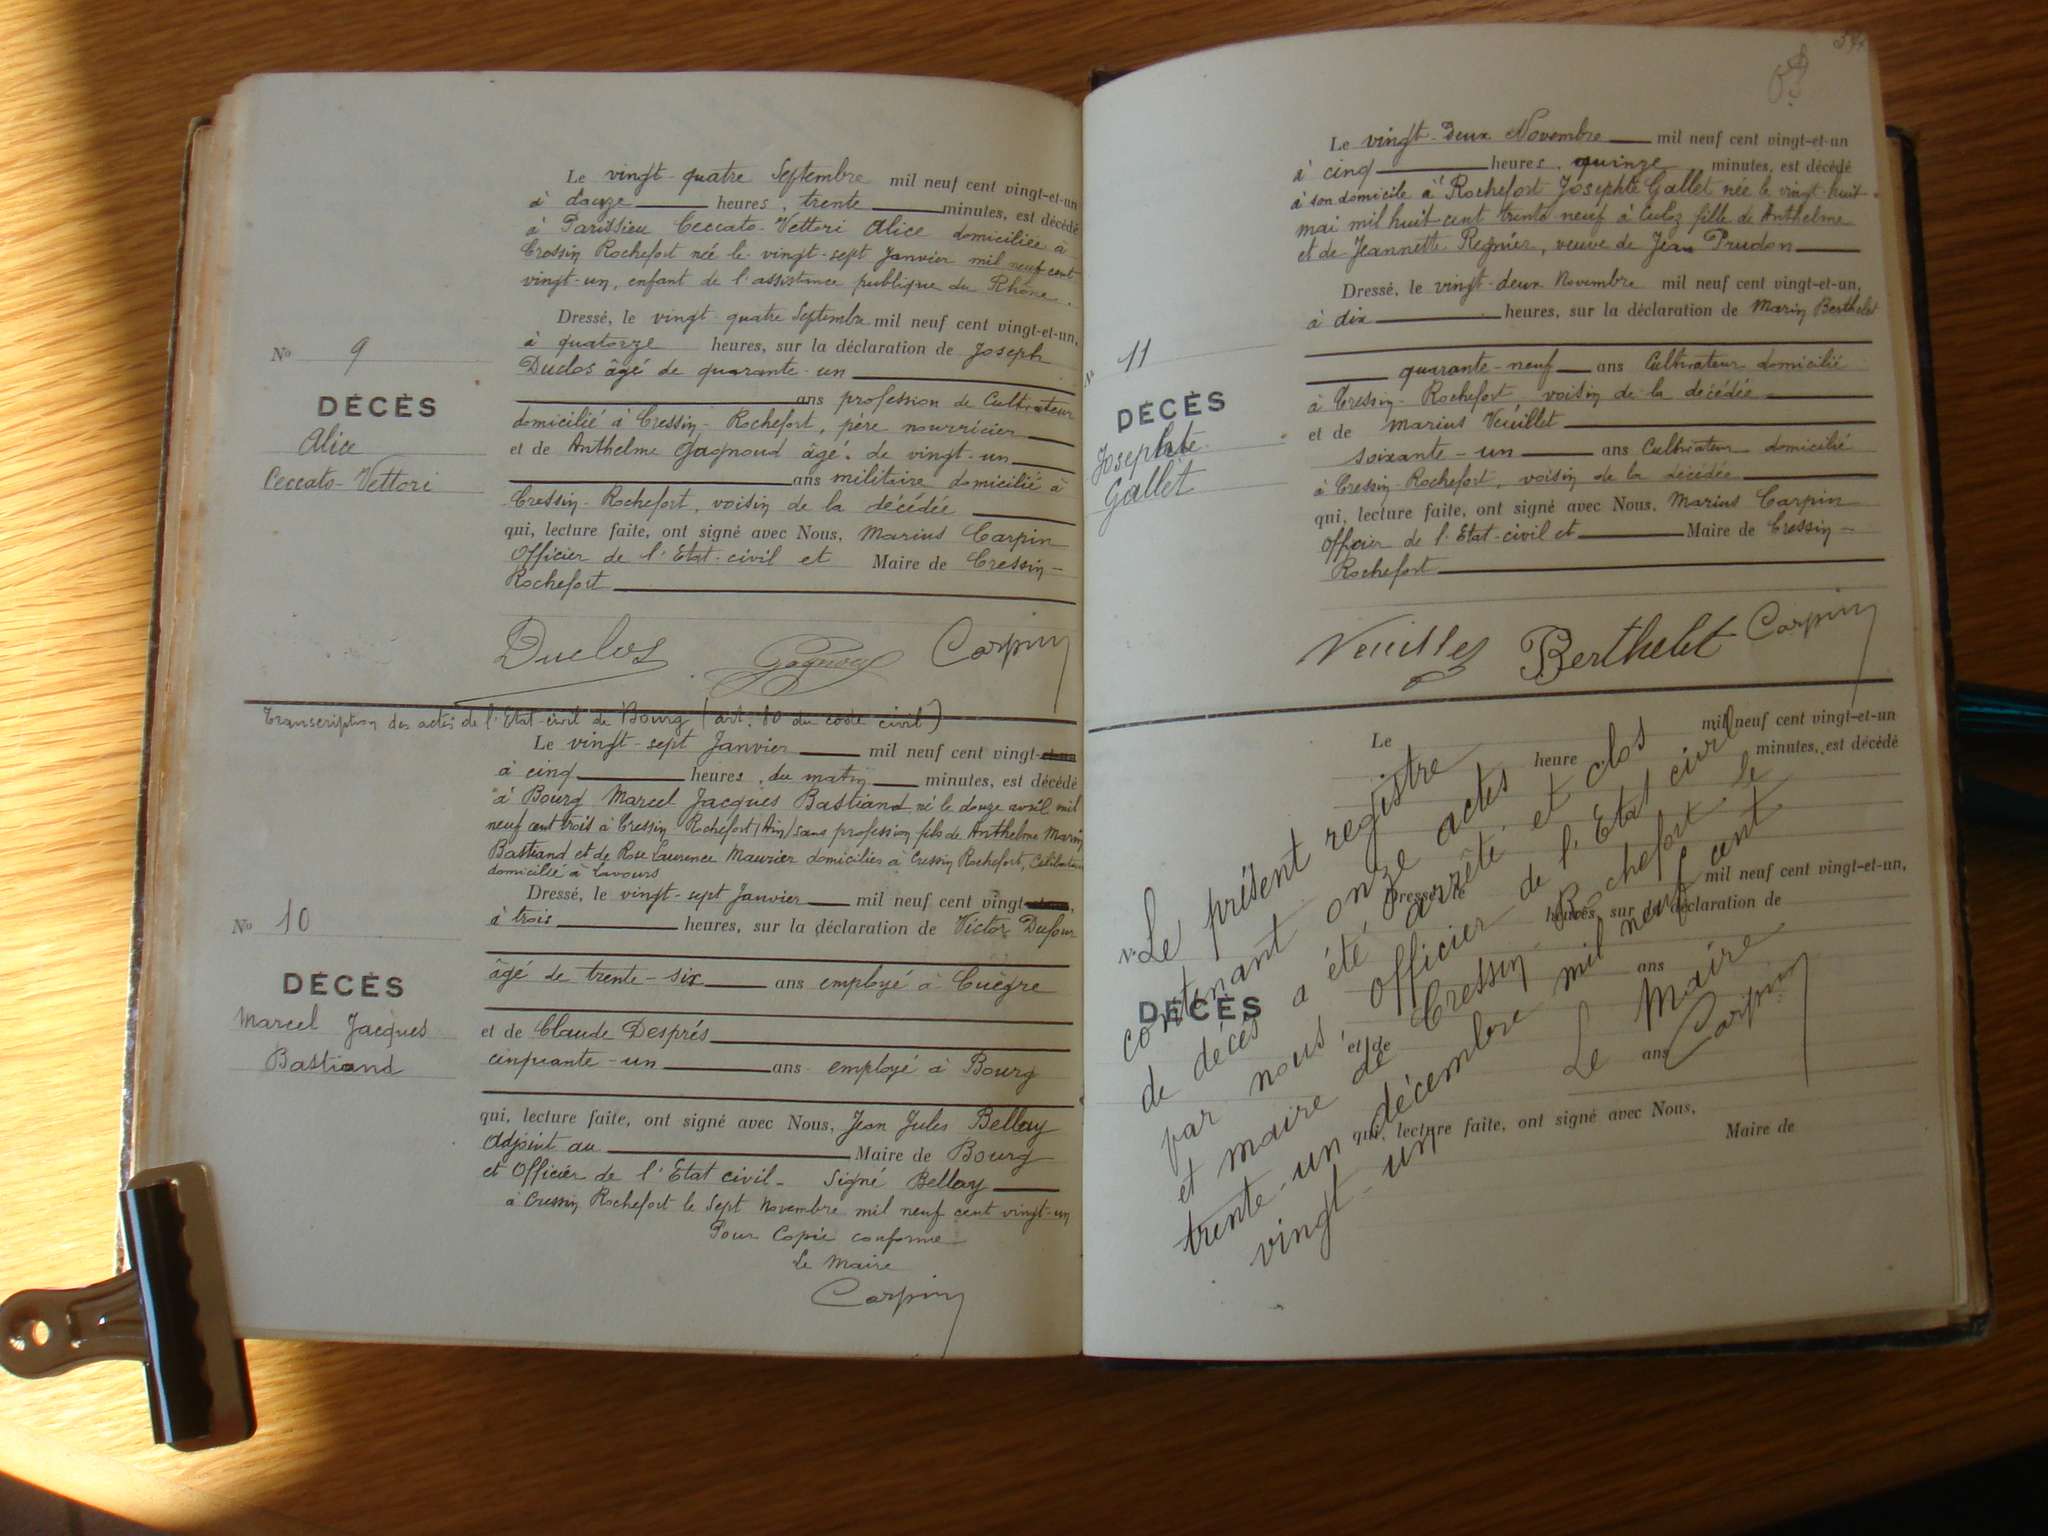 Le vingt-quatre Septembre mil neuf cent vingt-et-un
à douze heures, trente minutes, est décédé
à Parissieu Ceccato-Vettori Alice domiciliée à
Cressin Rochefort née le vingt-sept Janvier mil neuf cent
vingt-un, enfant de l'assistance publique du Rhône.
Dressé, le vingt-quatre Septembre mil neuf cent vingt-et-un,
à quatorze heures, sur la déclaration de Joseph
Duclos âgé de quarante-un
ans profession de Cultivateur
domicilié à Cressin-Rochefort, père nourricier
et de Anthelme Gagnoud âgé de vingt-un
ans militaire domicilié à
Cressin-Rochefort, voisin de la décédée
qui, lecture faite, ont signé avec Nous, Marius Carpin
Officier de l'Etat-civil et Maire de Cressin-
Rochefort
No 9
DÉCÈS
Alice
Ceccato-Vettori
Duclos Gagnoud Carpin
Transcription des actes de l'Etat-civil de Bourg (art. 80 du code civil)
Le vingt-sept Janvier mil neuf cent vingt-et-un
à cinq heures, du matin minutes, est décédé
à Bourg Marcel Jacques Bastiand né le douze avril mil
neuf cent trois à Cressin-Rochefort (Ain) sans profession fils de Anthelme Marin
Bastiand et de Rose Laurence Maurier domiciliés à Cressin Rochefort, Célibataire
domicilié à Lavours
Dressé, le vingt-sept Janvier mil neuf cent vingt
à trois heures, sur la déclaration de Victor Dufour
âgé de trente-six ans employé à Cuègre
et de Claude Després
cinquante-un ans employé à Bourg
qui, lecture faite, ont signé avec Nous, Jean Jules Bellay
Adjoint au Maire de Bourg
et Officier de l'Etat civil - Signé Bellay
à Cressin Rochefort le Sept Novembre mil neuf cent vingt-un
Pour Copie conforme
Le Maire
Carpin
No 10
DÉCÈS
Marcel Jacques
Bastiand
Le vingt-deux Novembre mil neuf cent vingt-et-un
à cinq heures, quinze minutes, est décédé
à son domicile à Rochefort Josephte Gallet née le vingt-huit
mai mil huit cent trente-neuf à Culoz fille de Anthelme
et de Jeannette Regnier, veuve de Jean Prudon
Dressé, le vingt-deux Novembre mil neuf cent vingt-et-un,
à dix heures, sur la déclaration de Marin Berthelet
quarante-neuf ans Cultivateur domicilié
à Cressin-Rochefort voisin de la décédée
et de Marius Veuillet
soixante-un ans Cultivateur domicilié
à Cressin-Rochefort, voisin de la décédée
qui, lecture faite, ont signé avec Nous, Marius Carpin
Officier de l'Etat-civil et Maire de Cressin-
Rochefort
No 11
DÉCÈS
Josephte
Gallet
Veuillet Berthelet Carpin
Le mil neuf cent vingt-et-un
heure minutes, est décédé
Dressé, le mil neuf cent vingt-et-un,
heures, sur la déclaration de
No
DÉCÈS
ans
et de
ans
qui, lecture faite, ont signé avec Nous,
Maire de
Le présent registre
contenant onze actes
de décès a été arrêté et clos
par nous, Officier de l'Etat civil
et maire de Cressin-Rochefort le
trente-un décembre mil neuf cent
vingt-un
Le Maire
Carpin